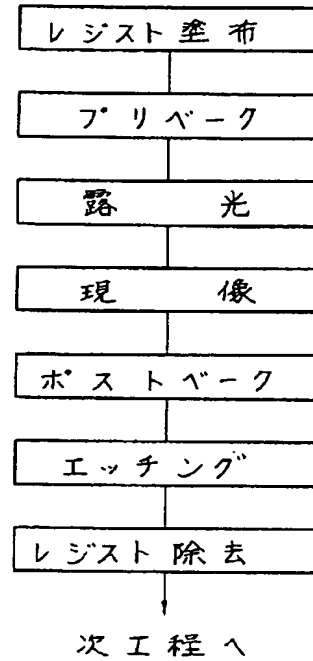 レジスト塗布
プリベーク
露光
現像
ポストベーク
エッチング
レジスト除去
次工程へ